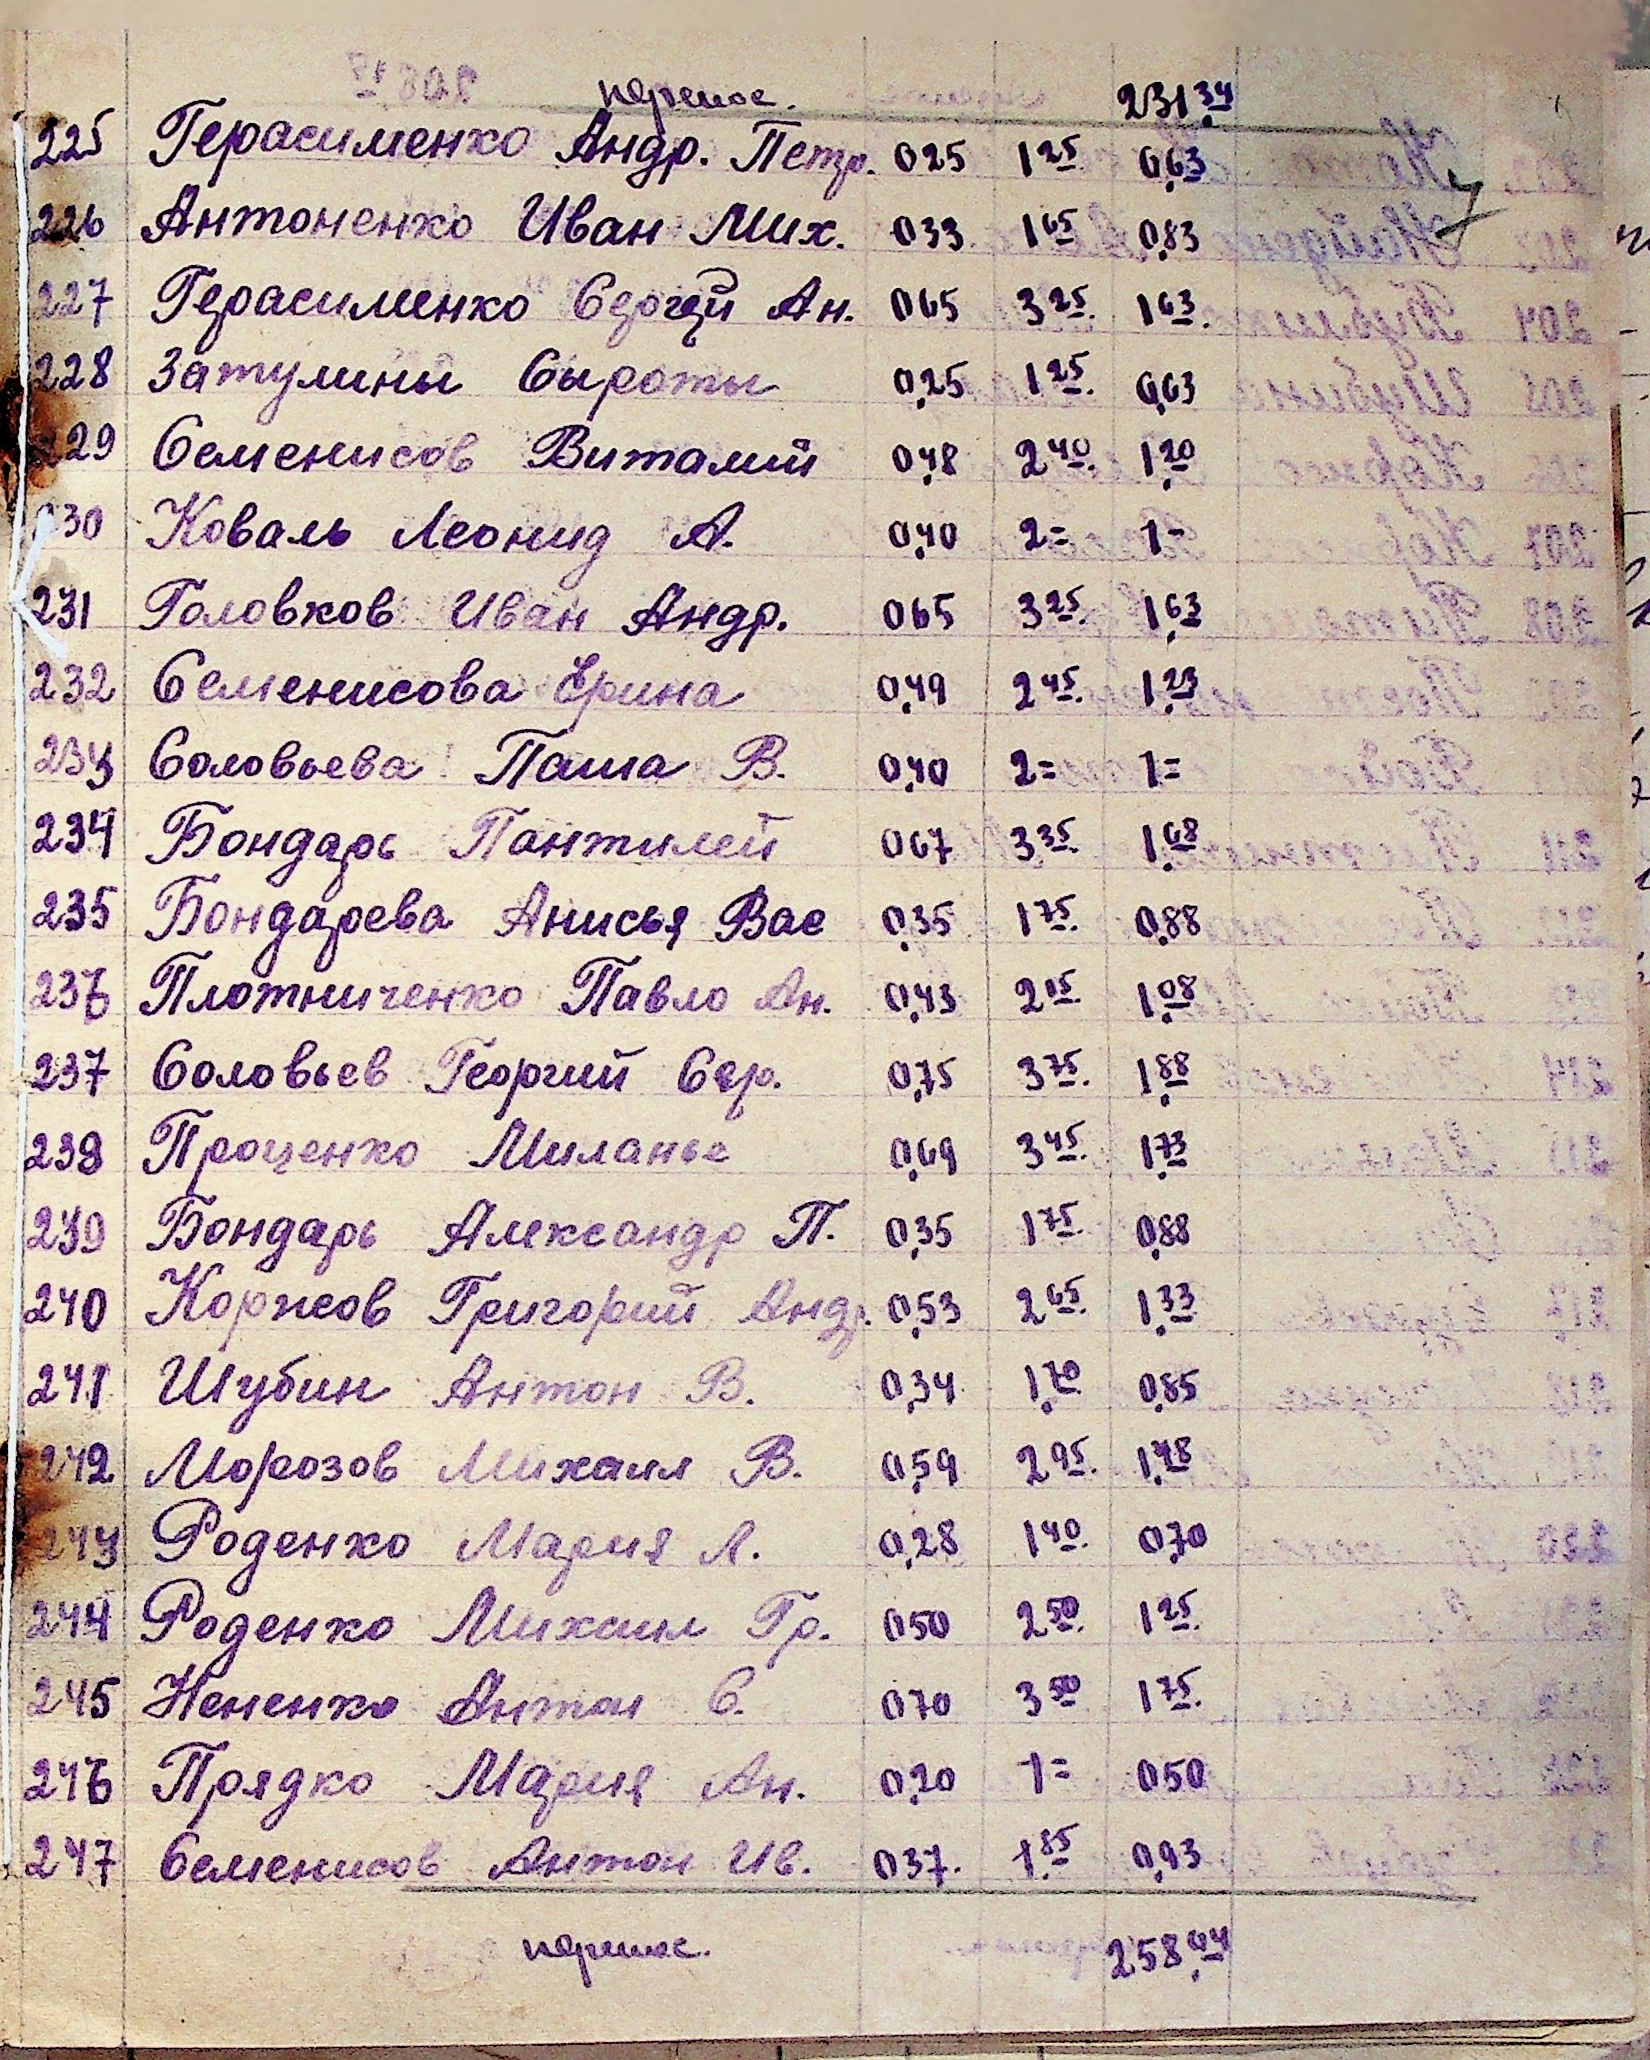 перенос. 231,34
225 Герасименко Андр. Петр. 025 1 25 0,63
226 Антоненко Иван Мих. 033 1 65 0,83
227 Герасименко Сергей Ан. 065 3 25. 1 63.
228 Затулины Сыроты 0,25 1 25. 0,63
229 Семенисов Виталий 0,48 2 40. 1,20
230 Коваль Леонид А. 0,40 2= 1-
231 Головков Иван Андр. 065 3 25. 1,63
232 Семенисова Ерина 0,49 2 45. 1,23
233 Соловьева Паша В. 0,40 2= 1=
234 Бондарь Пантилей 067 3 35. 1,68
235 Бондарева Анисья Вас 0,35 1 75. 0,88
236 Плотниченко Павло Ан. 0,43 2 15. 1,08
237 Соловьев Георгий Сер. 0,75 3 75. 1,88
238 Проценко Миланье 0,69 3 45. 1,73
239 Бондарь Александр П. 0,35 1 75. 0,88
240 Коржов Григорий Андр. 0,53 2 65. 1,33
241 Шубин Антон В. 0,34 1,70 0,85
242 Морозов Михаил В. 0,59 2 95. 1,48
243 Роденко Мария Л. 0,28 1 40. 0,70
244 Роденко Михаил Гр. 050 2 50. 1 25.
245 Нененко Антон С. 070 3 50 1 75.
246 Прядко Мария Ан. 0,20 1= 050
247 Семенисов Антон Ив. 037. 1,85 0,93
перенос. 258,04